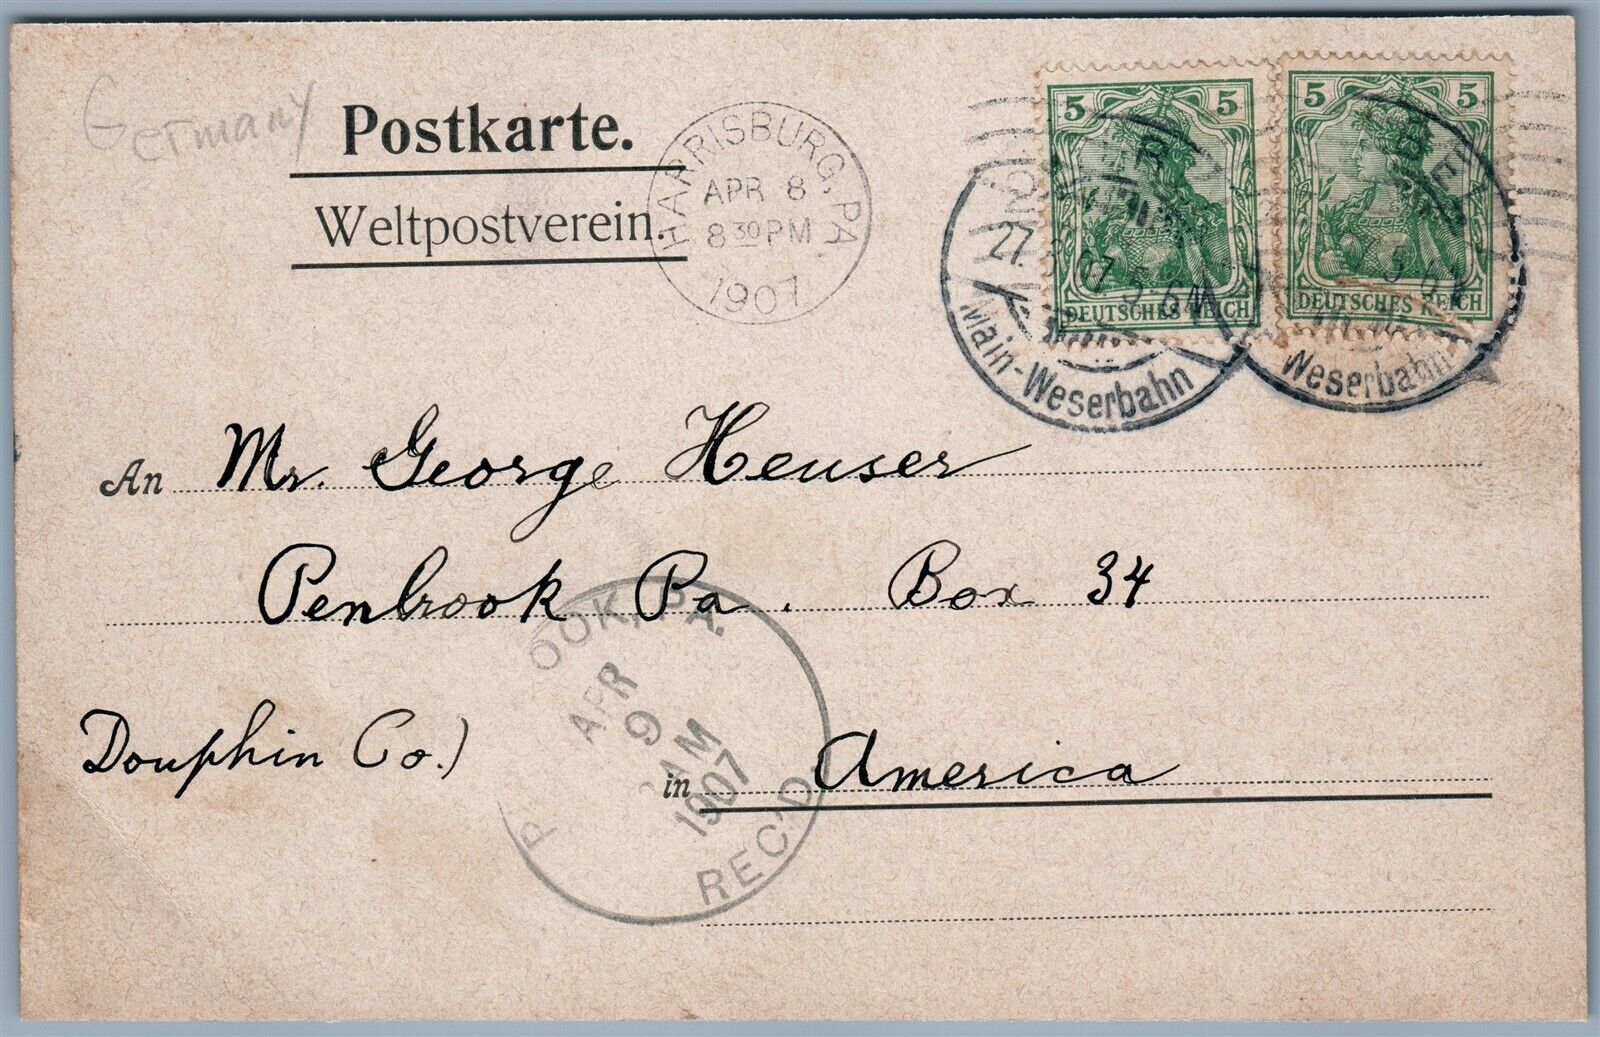 Germany
Postkarte.
Weltpostverein.
HARRISBURG, PA
APR 8
8 30 PM
1907
5 5
DEUTSCHES REICH
5 5
DEUTSCHES REICH
27. 07. 5-6N
Main-Weserbahn
Weserbahn
An Mr. George Heuser
Penbrook Pa. Box 34
OOK, PA.
APR
9
AM
1907
REC'D.
Douphin Co.)
in America